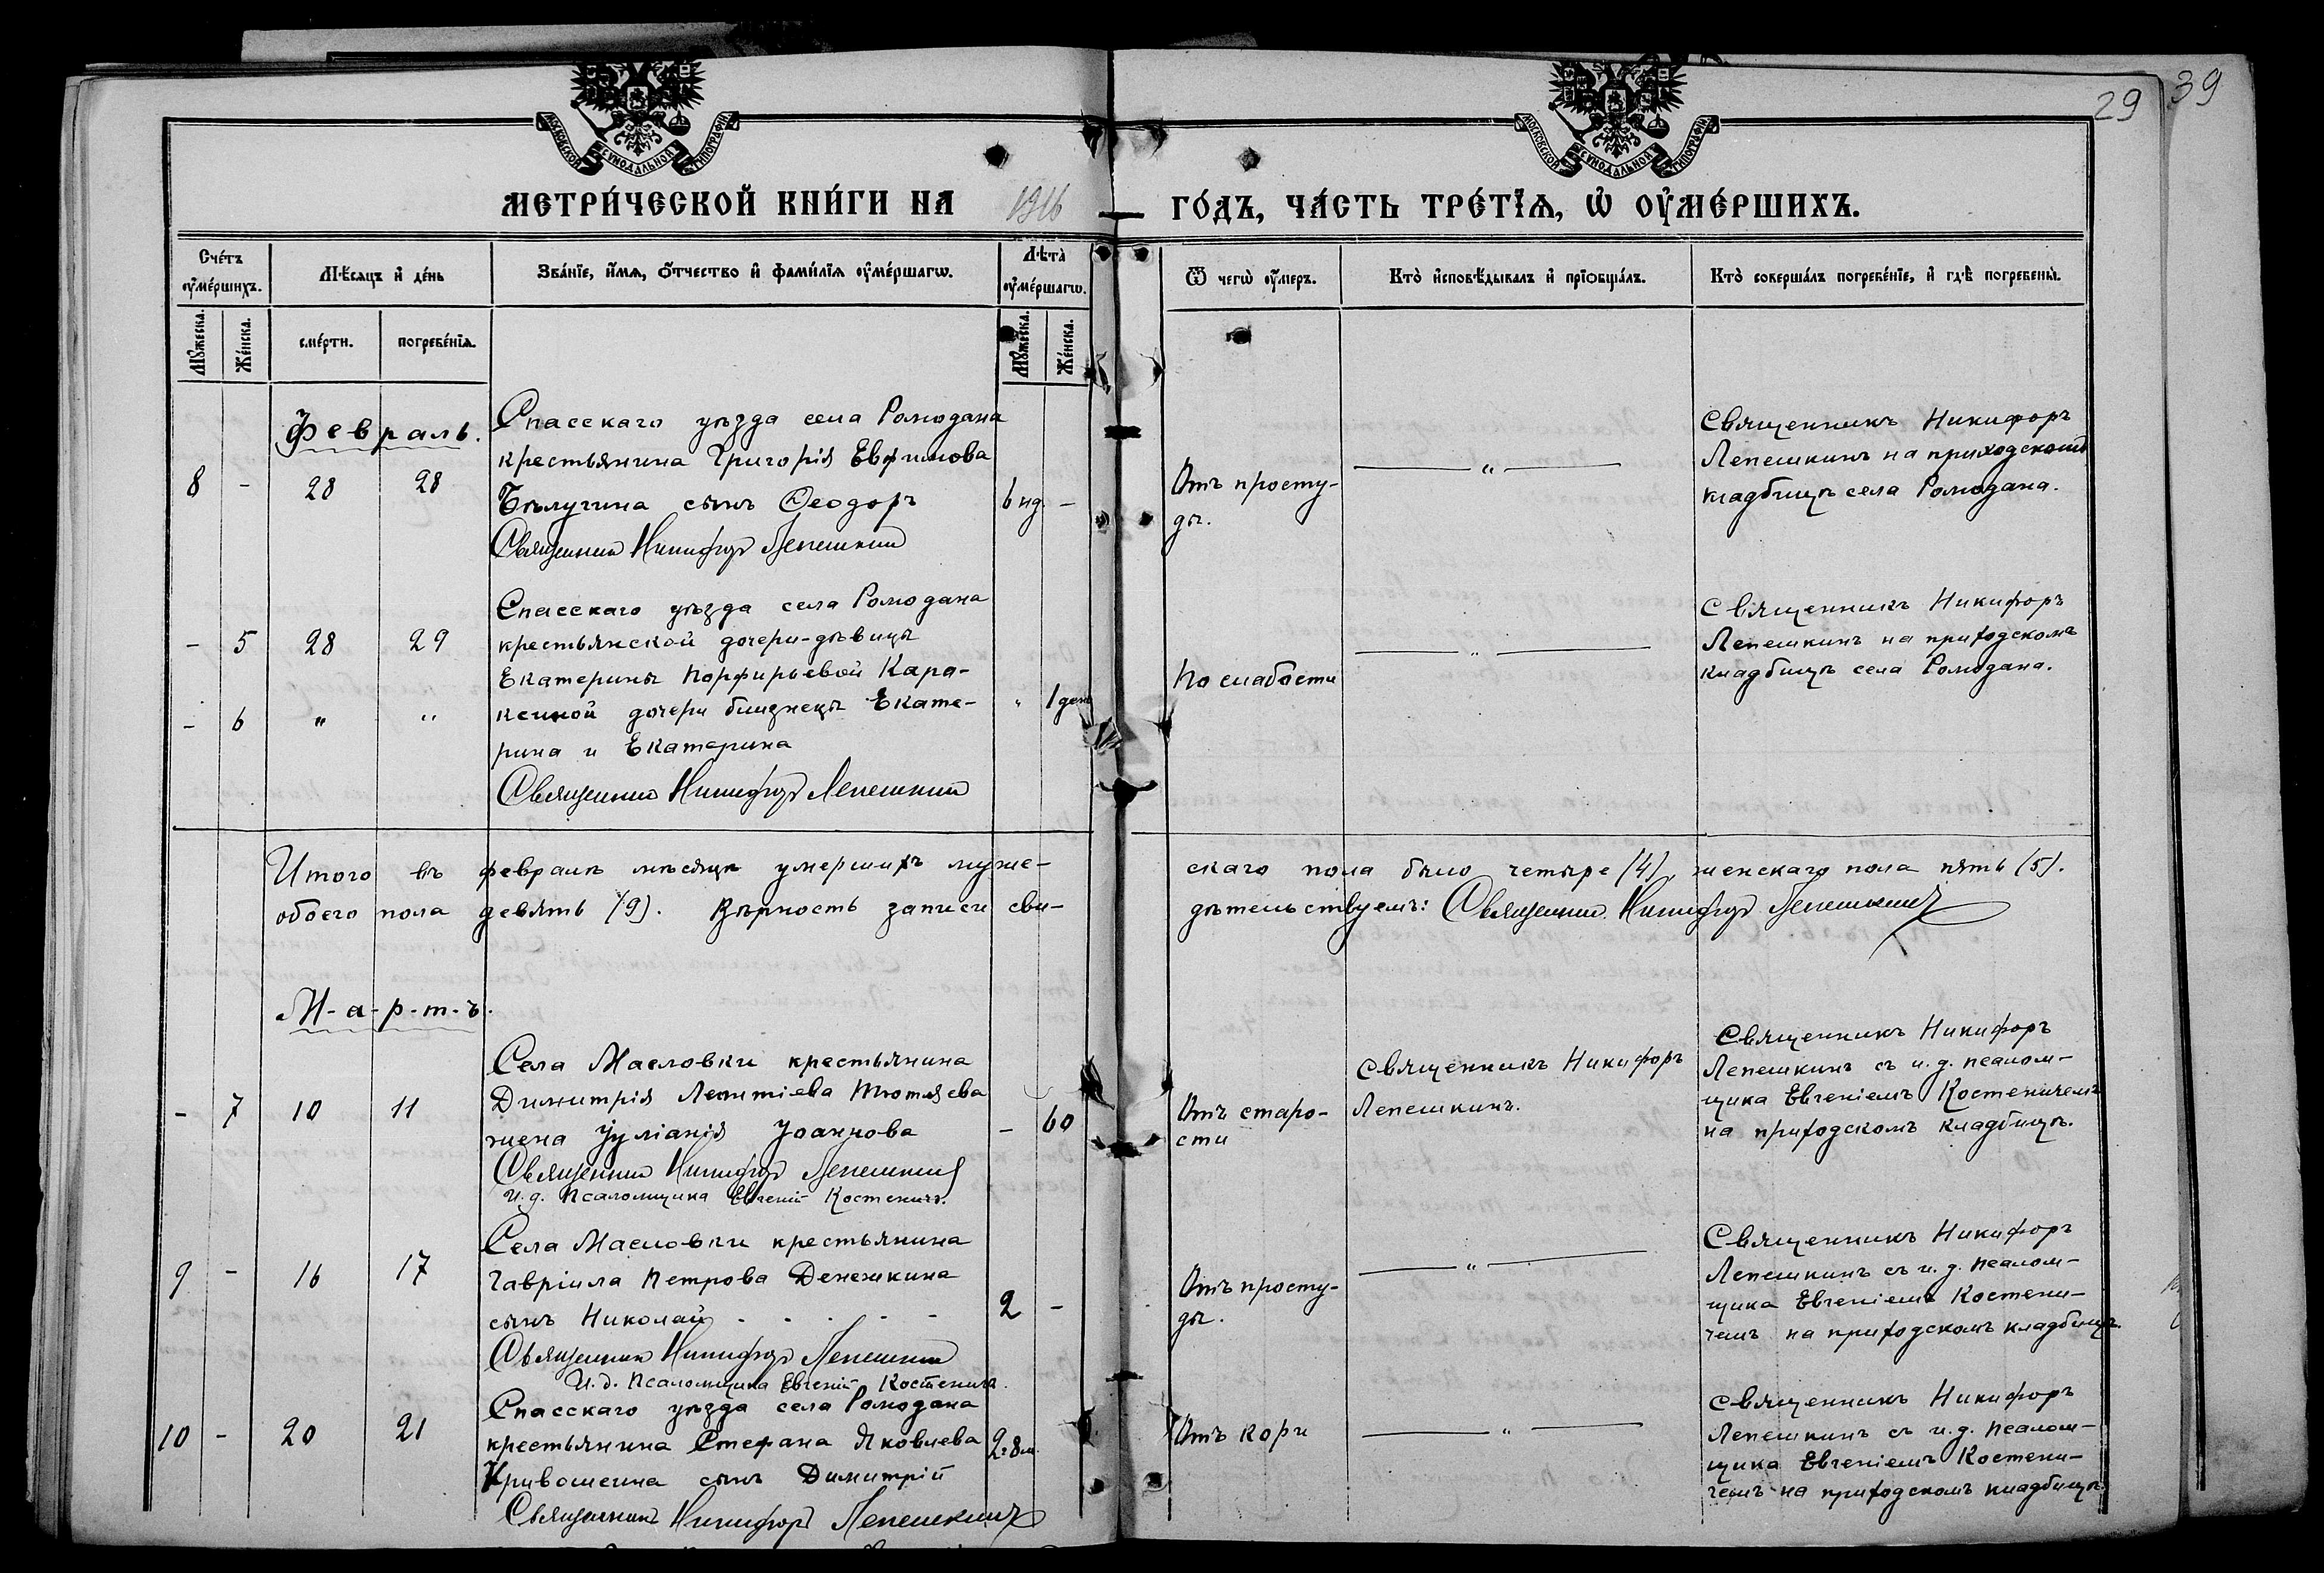 29
39
МОСКОВСКОЙ СѴНОДАЛЬНОЙ ТИПОГРАФІИ
МОСКОВСКОЙ СѴНОДАЛЬНОЙ ТИПОГРАФІИ
МЕТРИ́ЧЕСКОЙ КНИ́ГИ НА 1916 ГО́ДЪ, ЧА́СТЬ ТРЕ́ТІѦ, Ѡ҆ ОУ҆МЕ́РШИХЪ.
Сче́тъ оу҆ме́ршихъ.
Мѣ́сяцъ и҆ де́нь
Зва́нїе, и҆́мя, ѻ҆́тчество и҆ фами́лїя оу҆ме́ршагѡ.
Лѣ́та оу҆ме́ршагѡ.
Ѿ чегѡ̀ оу҆́меръ.
Кто̀ и҆сповѣ́дывалъ и҆ прїѻбща́лъ.
Кто̀ соверша́лъ погребе́нїе, и҆ гдѣ̀ погребены̀.
Мꙋ́жеска.
Же́нска.
сме́рти.
погребе́нїя.
Мꙋ́жеска.
Же́нска.
Февраль.
8 - 28 28
Спасскаго уѣзда села Ромодана
крестьянина Григорія Евфимова
Бѣлугина сынъ Ѳеодоръ
Священникъ Никифоръ Лепешкин
6 нд. -
Отъ просту-
ды.
— " —
Священникъ Никифоръ
Лепешкинъ на приходскомъ
кладбищѣ села Ромодана.
- 5 28 29
- 6 " "
Спасскаго уѣзда села Ромодана
крестьянской дочери-дѣвицы
Екатерины Порфирьевой Кара-
дочери близнецы Екате-
рина и Екатерина
Священникъ Никифоръ Лепешкин
" 1 день
По слабости
— " —
Священникъ Никифоръ
Лепешкинъ на приходскомъ
кладбищѣ села Ромодана.
Итого въ февралѣ мѣсяцѣ умершихъ муже-
скаго пола было четыре (4), женскаго пола пять (5).
обоего пола девять (9). Вѣрность записи сви-
дѣтельствуемъ: Священник Никифоръ Лепешкинъ
М-а-р-т-ъ.
- 7 10 11
Села Масловки крестьянина
Димитрія Леонтіева Тютяева
жена Іуліанія Іоаннова
Священник Никифоръ Лепешкин
И. д. Псаломщика Евгеній Костеничъ.
- 60
Отъ старо-
сти
Священникъ Никифоръ
Лепешкинъ.
Священникъ Никифоръ
Лепешкинъ съ и. д. псалом-
щика Евгеніемъ Костеничемъ
на приходскомъ кладбищѣ.
9 - 16 17
Села Масловки крестьянина
Гавріила Петрова Денежкина
сынъ Николай . . . . .
Священник Никифоръ Лепешкин
И. д. Псаломщика Евгеній Костеничъ.
2 -
Отъ просту-
ды.
— " —
Священникъ Никифоръ
Лепешкинъ съ и. д. псалом-
щика Евгеніемъ Костени-
чемъ на приходскомъ кладбищѣ.
10 - 20 21
Спасскаго уѣзда села Ромодана
крестьянина Стефана Яковлева
Кривошеина сынъ Димитрій
Священникъ Никифоръ Лепешкинъ
2 г 8 м.
Отъ кори
— " —
Священникъ Никифоръ
Лепешкинъ съ и. д. псалом-
щика Евгеніемъ Костени-
чемъ на приходскомъ кладбищѣ.